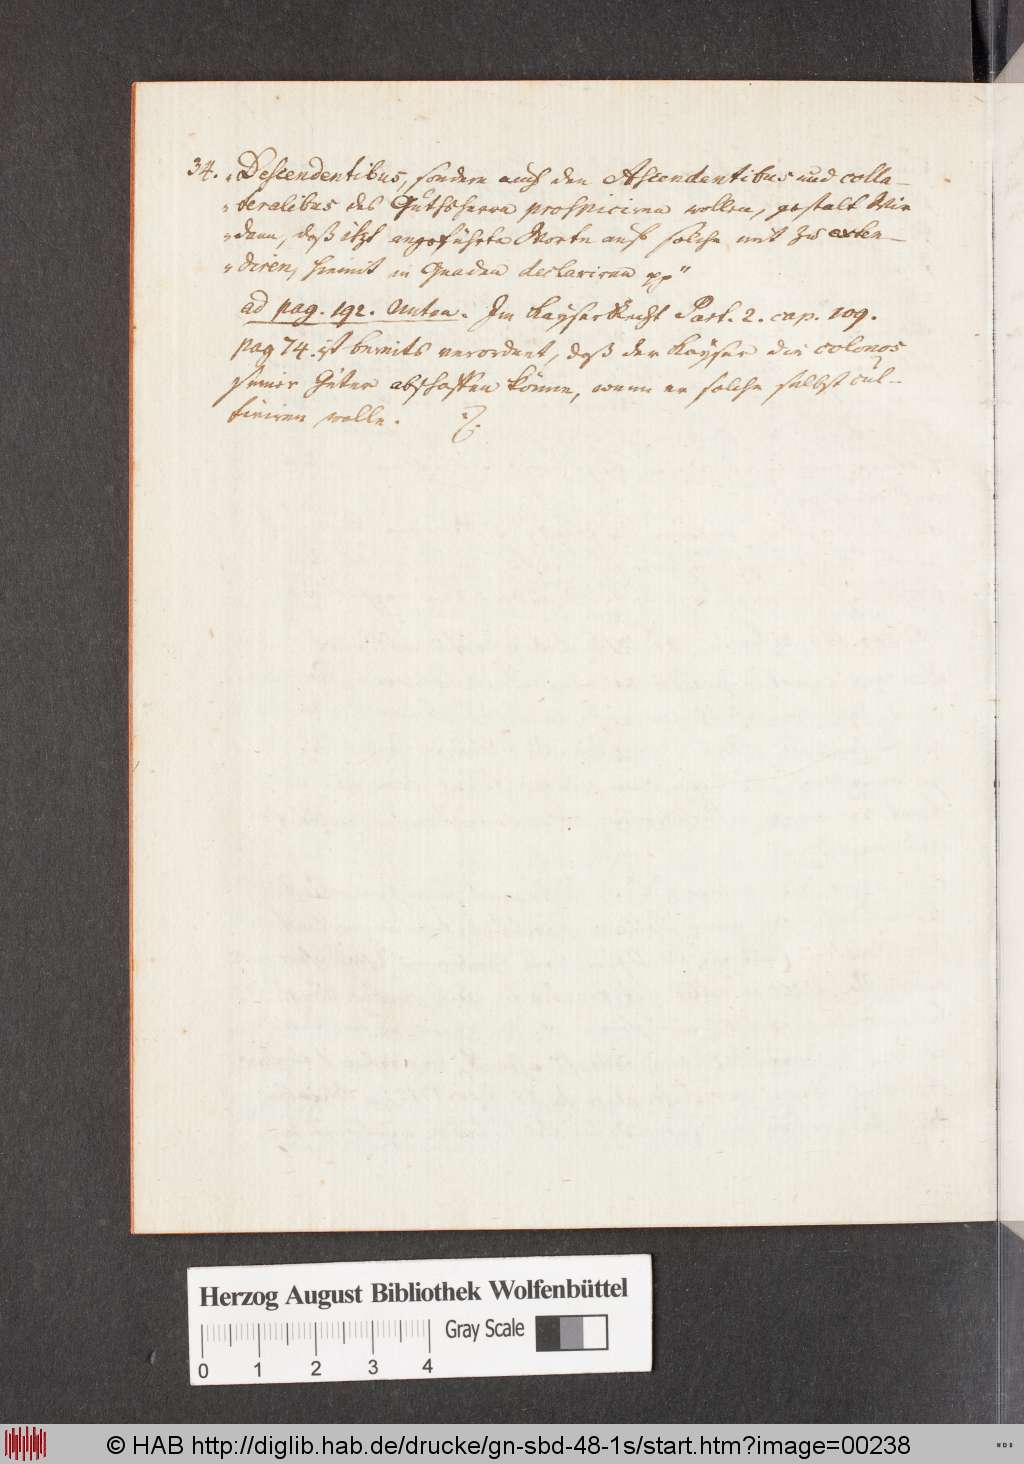 34. „Descendentibus, sondern auch den Ascendentibus und colla-
„teralibus des Guthsherrn prospiciren wollen, gestalt Wir
„dann, daß itzt angeführte Worte auch solche mit zu exten-
„diren, hiemit in Gnaden declariren pp"
ad pag. 192. unten. Im Kayser Recht Part. 2. cap. 109.
pag 74. ist bereits verordnet, daß der Kayser die colonos
seiner Güter abschaffen könne, wenn er solche selbst cul-
tiviren wolle.
Herzog August Bibliothek Wolfenbüttel
Gray Scale
0 1 2 3 4
© HAB http://diglib.hab.de/drucke/gn-sbd-48-1s/start.htm?image=00238